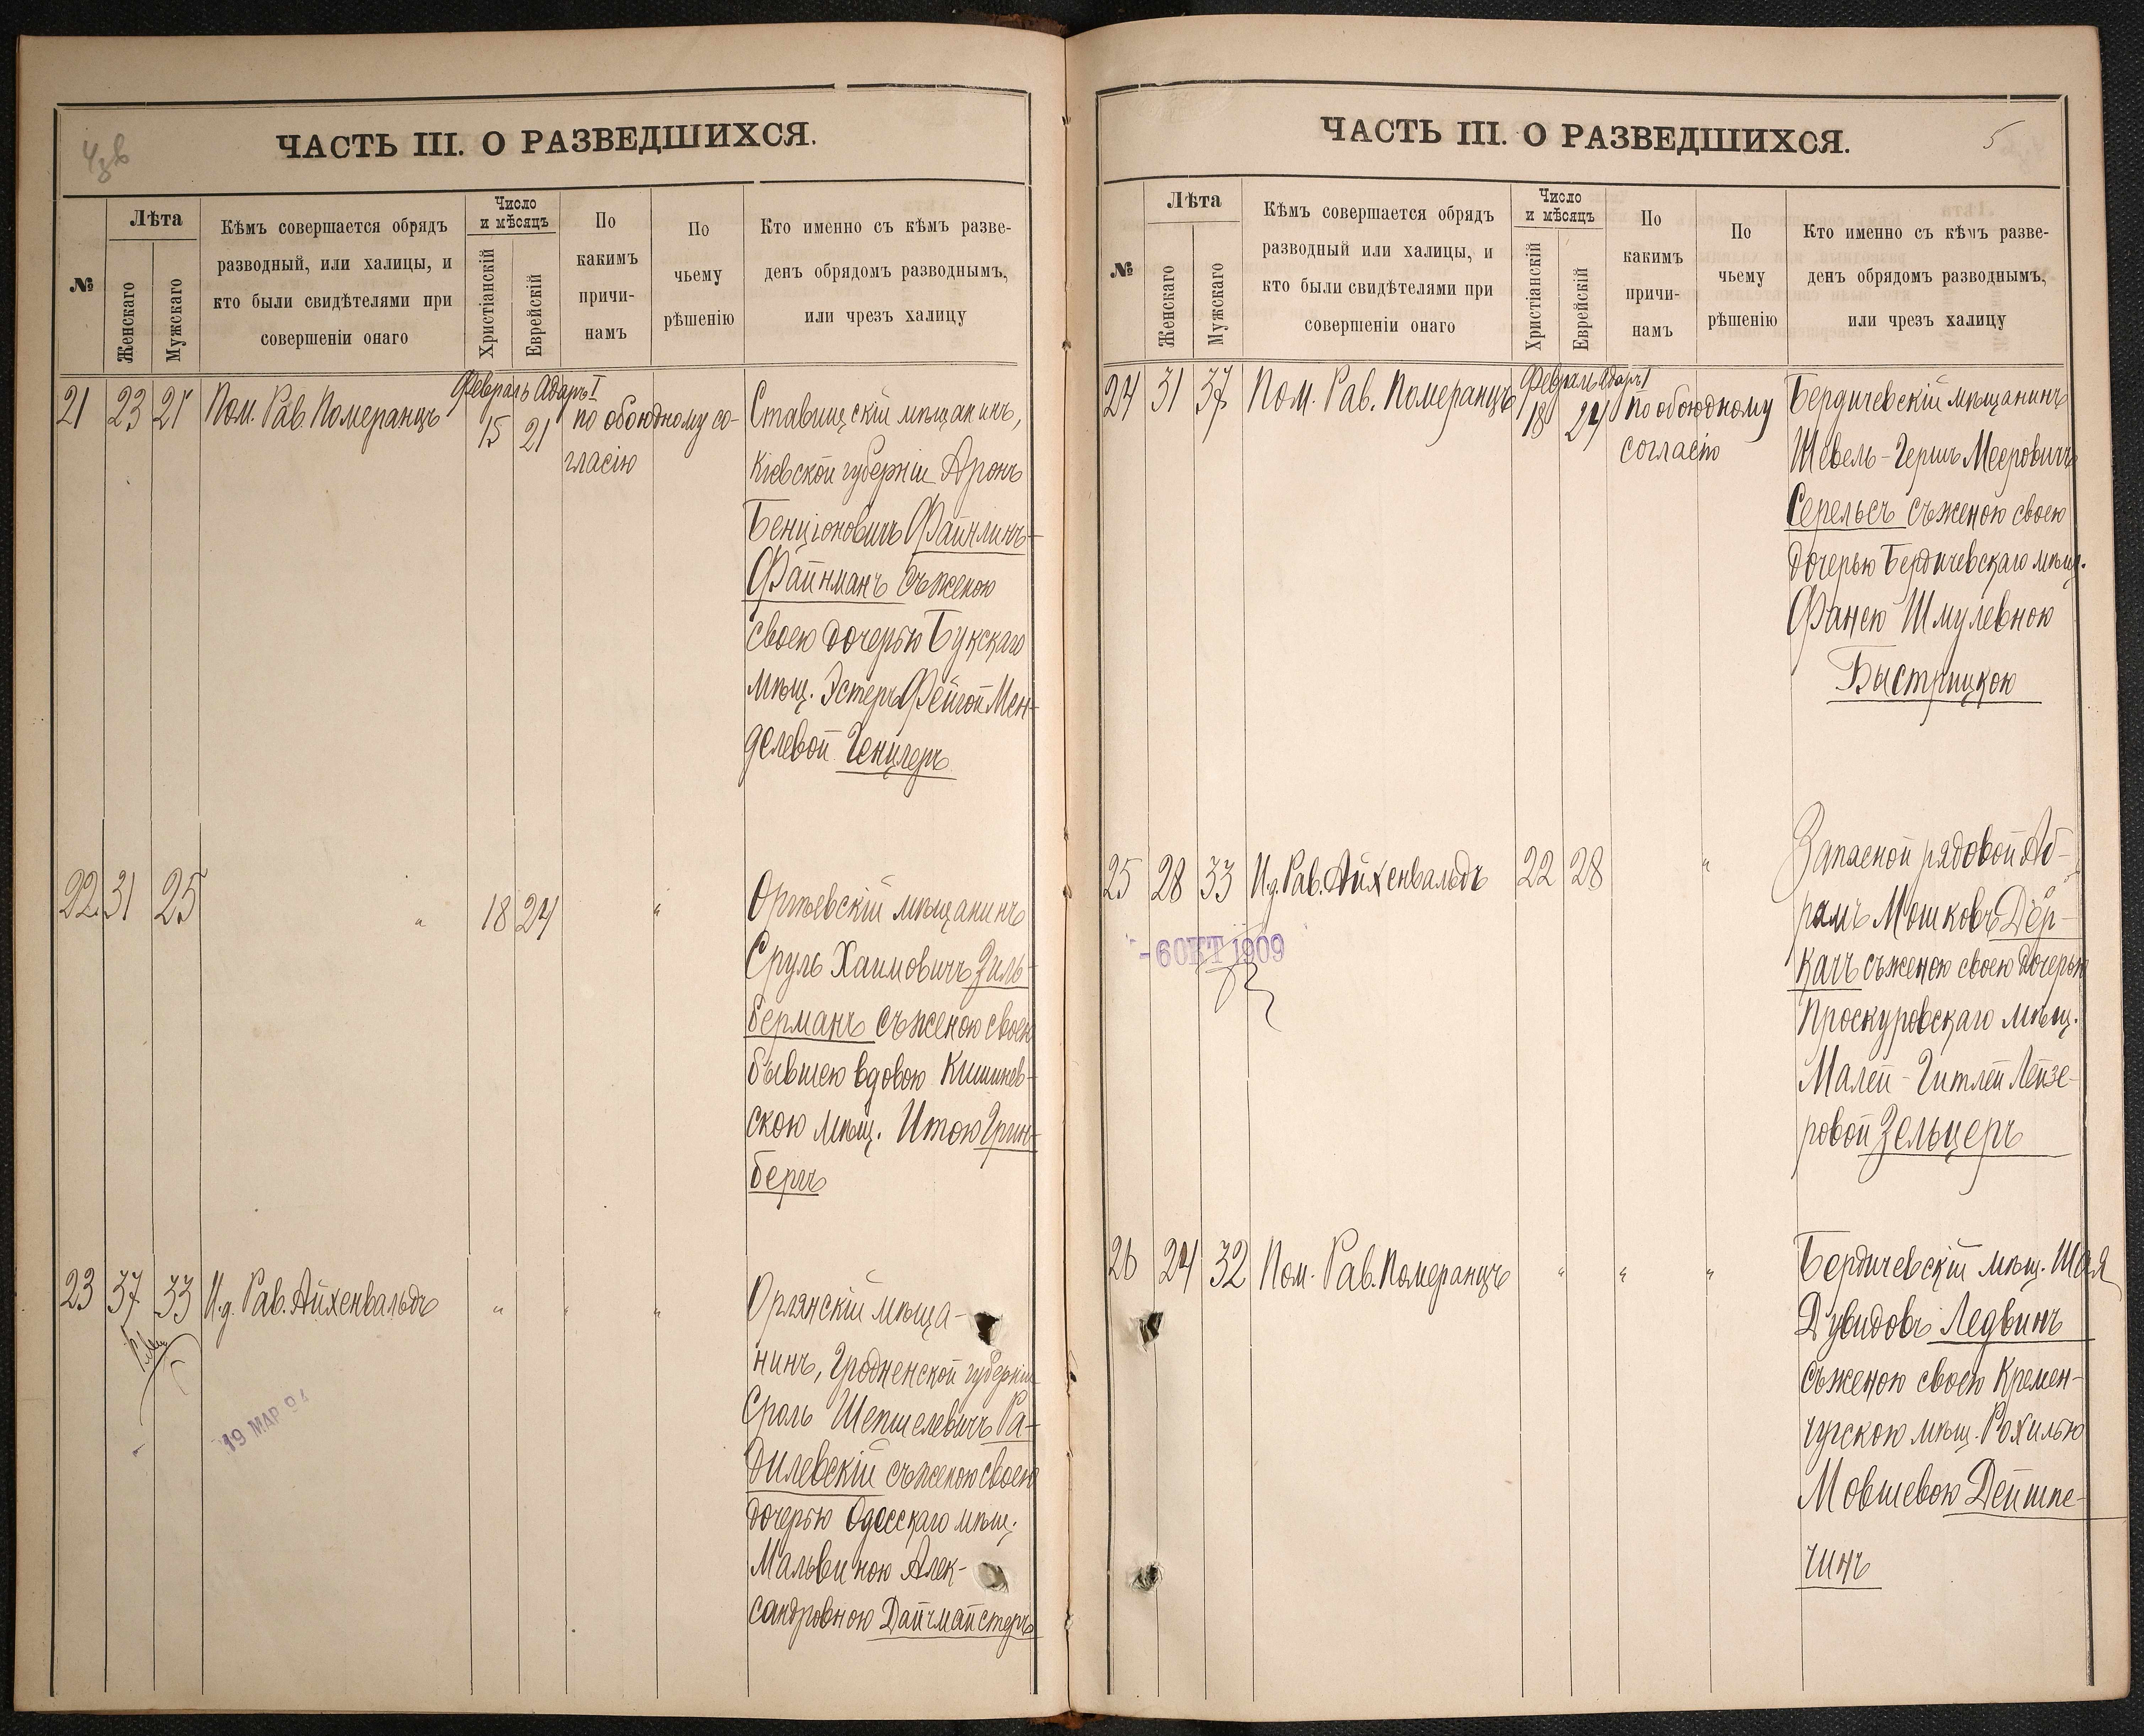 ЧАСТЬ III. О РАЗВЕДШИХСЯ.
№
Лѣта
Женскаго
Мужскаго
Кѣмъ совершается обрядъ
разводный, или халицы, и
кто были свидѣтелями при
совершеніи онаго
Число
и мѣсяцъ
Христіанскій
Еврейскій
По
какимъ
причи-
намъ
По
чьему
рѣшенію
Кто именно съ кѣмъ разве-
денъ обрядомъ разводнымъ,
или чрезъ халицу
Февраль Адаръ I
21 23 27 Пом. Рав. Померанцъ 15 21 по обоюдному со-
гласію
Ставищскій мѣщанинъ,
Кіевской губерніи Аронъ
Бенціоновичъ Файнлинъ-
Файнманъ съ женою
своею дочерью Букскаго
мѣщ. Эстеръ Фейгой Мен-
делевой Генцлеръ
22 31 25 " 18 24 "
Оргѣевскій мѣщанинъ
Сруль Хаимовичъ Зиль-
берманъ съ женою своею
бывшею вдовою Кишинев-
скою мѣщ. Итою Грин-
бергъ
23 37 33 И.д. Рав. Айхенвальдъ " " "
19 МАР 94
Орлянскій мѣща-
нинъ, Гродненской губерніи
Сроль Шепшелевичъ Ра-
дилевскій съ женою своею
дочерью Одесскаго мѣщ.
Мальвиною Алек-
сандровною Дайчмайстеръ
ЧАСТЬ III. О РАЗВЕДШИХСЯ.
5
№
Лѣта
Женскаго
Мужскаго
Кѣмъ совершается обрядъ
разводный или халицы, и
кто были свидѣтелями при
совершеніи онаго
Число
и мѣсяцъ
Христіанскій
Еврейскій
По
какимъ
причи-
намъ
По
чьему
рѣшенію
Кто именно съ кѣмъ разве-
денъ обрядомъ разводнымъ,
или чрезъ халицу
Февраль Адаръ I
24 31 37 Пом. Рав. Померанцъ 18 24 по обоюдному
согласію
Бердичевскій мѣщанинъ
Шевель-Гершъ Мееровичъ
Серельсъ съ женою своею
дочерью Бердичевскаго мѣщ.
Фанею Шмулевною
Быстрицкою
25 28 33 И.д. Рав. Айхенвальдъ 22 28 "
-6 ОКТ 1909
Запасной рядовой Аб-
рамъ Мошковъ Дер-
качъ съ женою своею дочерью
Проскуровскаго мѣщ.
Малей-Гитлей Лейзе-
ровой Зельцеръ
26 24 32 Пом. Рав. Померанцъ " " "
Бердичевскій мѣщ. Шая
Дувидовъ Ледвинъ
съ женою своею Кремен-
чугскою мѣщ. Рохилью
Мовшевою Дейтпе-
чинъ